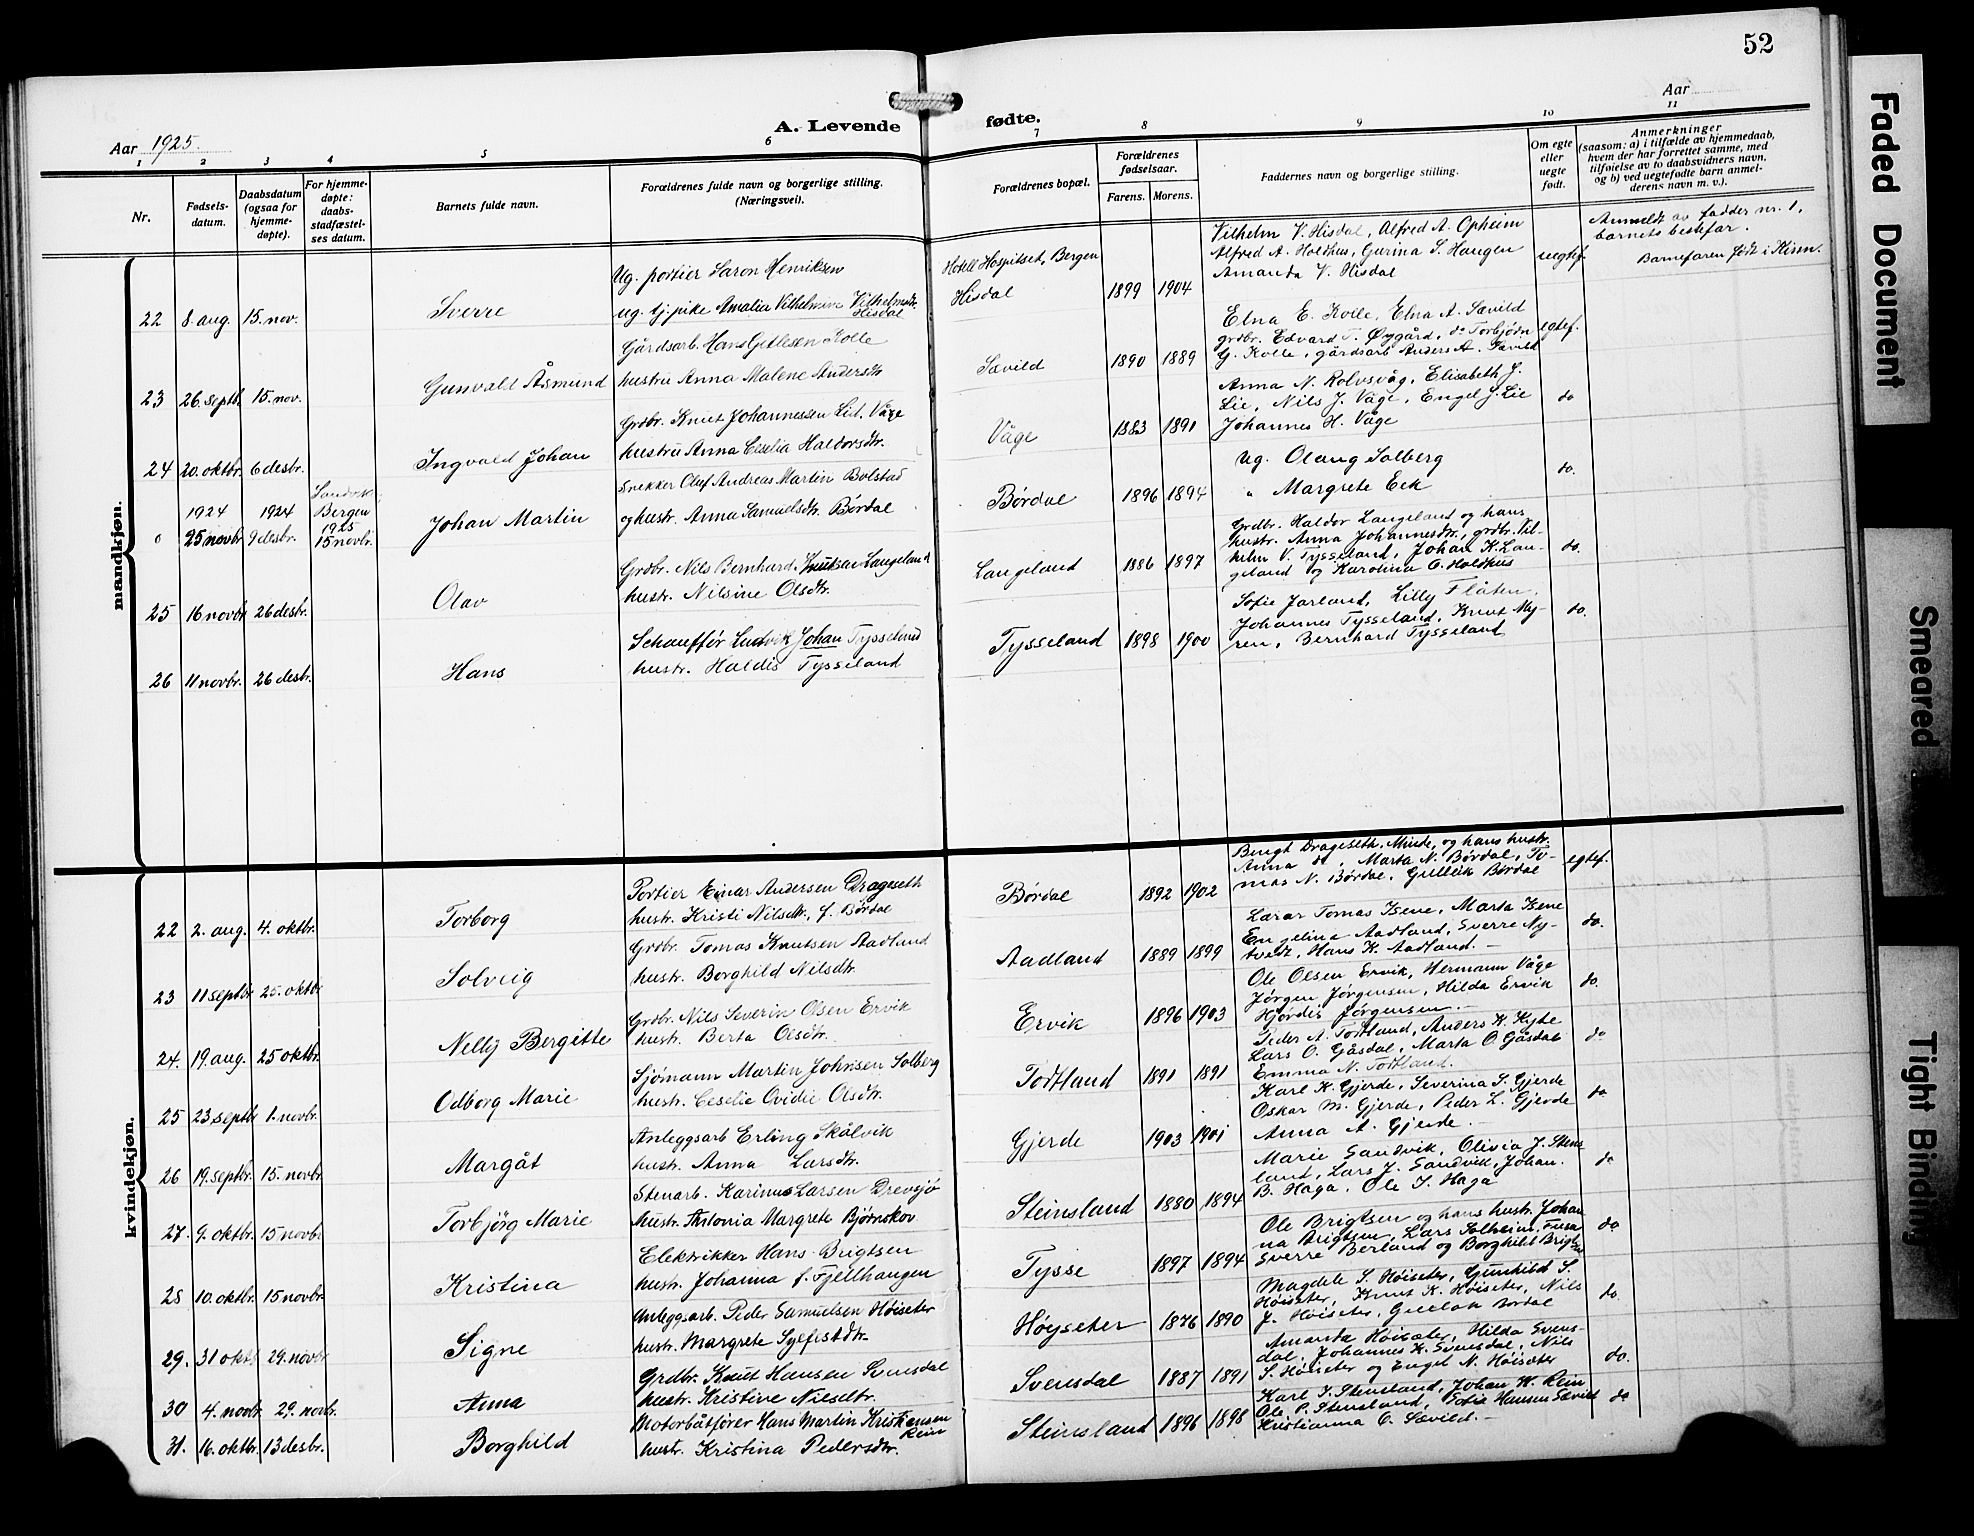 52
Aar 1925.
A. Levende fødte.
Aar
1 2 3 4 5 6 7 8 9 10 11
Nr.
Fødsels-
datum.
Daabsdatum
(ogsaa for
hjemme-
døpte).
For hjemme-
døpte:
daabs-
stadfæstel-
ses datum.
Barnets fulde navn.
Forældrenes fulde navn og borgerlige stilling.
(Næringsvei).
Forældrenes bopæl.
Forældrenes
fødselsaar.
Farens. Morens.
Faddernes navn og borgerlige stilling.
Om egte
eller
uegte
født.
Anmerkninger
(saasom: a) i tilfælde av hjemmedaab,
hvem der har forrettet samme, med
tilføielse av to daabsvidners navn.
og b) ved uegtefødte barn anmel-
derens navn m. v.).
mandkjøn.
22 8. aug. 15. nov. Sverre
Ug. portier Laron Henriksen
ug. tj. pike Amalie Vilhelmine Vilhelmsdtr.
Hisdal
Hotell Hospitset, Bergen
Hisdal
1899 1904
Vilhelm V. Hisdal, Alfred A. Opheim
Alfred A. Holdhus, Gurina S. Haugen
Amanda V. Hisdal
uegtef.
Anmeldt av fadder nr. 1,
barnets bestefar.
Barnefaren født i Kinn.
23 26. septb. 15. nov. Gunvald Åsmund
Gårdsarb. Hans Getlesen Kolle
hustru Anna Malene Andersdtr
Sævild
1890 1889
Elna E. Kolle, Elna A. Sævild
grdbr. Edvard T. Øygård, do Torbjørn
G. Kolle, gårdsarb Anders A. Sævild
egtef.
24 20. oktbr. 6 desbr. Ingvald Johan
Grdbr. Knut Johannessen Lid, Våge
hustru Anna Ceselia Haldorsdtr.
Våge
1883 1891
Anna N. Rolvsvåg, Elisabeth J.
Lie, Nils J. Våge, Engel J. Lie
Johannes H. Våge
do
0 1924 25 novbr 1924 9 desbr. Sandvik
Bergen
1925
15 novbr.
Johan Martin
Snekker Oluf Andreas Martin Bolstad
og hustr. Anna Samuelsdtr. Børdal
Børdal
1896 1894
Ug. Olaug Solberg
" Margrete Eek
do.
25 16 novbr 26 desbr. Olav
Grdbr. Nils Bernhard Knutsen Langeland
hustr. Nilsine Olsdtr.
Langeland
1886 1897
Grdbr. Haldor Langeland og hans
hustr. Anna Johannesdtr., grdbr. Vil-
helm V. Tysseland, Johan K. Lan-
geland og Karolina O. Holdhus
do.
26 11 novbr. 26 desbr. Hans
Schauffør Ludvik Johan Tysseland
hustr. Haldis Tysseland
Tysseland
1898 1900
Sofie Jarland, Lilly Flåten
Johannes Tysseland, Knut My-
ren, Bernhard Tysseland
do.
kvindekjøn.
22 2. aug. 4. oktbr. Torborg
Portier Einar Andersen Drageseth
hustr. Kristi Nilsdtr, f. Børdal
Børdal
1892 1902
Bengt Drageseth, Minde, og hans hustr.
Anna do, Marta N. Børdal, To-
mas N. Børdal, Gulleik Børdal
egtef.
23 11 septbr 25. oktbr Solveig
Grdbr. Tomas Knutsen Aadland
hustr. Borghild Nilsdtr.
Aadland
1889 1899
Lærar Tomas Isene, Marta Isene
Engelina Aadland, Sverre Ny-
tvedt, Hans K. Aadland.
do.
24. 19. aug. 25 oktbr. Nelly Bergitte
Grdbr. Nils Severin Olsen Ervik
hustr. Berta Olsdtr.
Ervik
1896 1903
Ole Olsen Ervik, Hermann Våge
Jørgen Jørgensen, Hilda Ervik
Hjørdis Jørgensen.
do.
25 23 septbr 1. novbr. Odborg Marie
Sjømann Martin Johnsen Solberg
hustr. Ceselie Ovidie Olsdtr.
Todtland
1891 1891
Peder A. Todtland, Anders K. Hybe
Lars O. Gåsdal, Marta O. Gåsdal
Emma N. Todtland.
do
26 19. septbr. 15. novbr. Margåt
Anleggsarb Erling Skålvik
hustr. Anna Larsdtr.
Gjerde
1903 1901
Karl K. Gjerde, Severina S. Gjerde
Oskar M. Gjerde, Peder L. Gjerde
Anna A. Gjerde.
do
27. 9. oktbr. 15 novbr Torbjørg Marie
Stenarb. Karinus Larsen Drevsjø
hustr. Antonia Margrete Bjørnskov
Steinsland
1880 1894
Marie Sandvik, Olivia J. Stens
land, Lars J. Sandvik, Johan
B. Haga, Ole J. Haga
do
28 10. oktbr. 15 novbr. Kristina
Elektrikker Hans Brigtsen
hustr. Johanna f. Fjellhaugen
Tysse
1897 1894
Ole Brigtsen og hans hustr. Johan
na Brigtsen, Lars Solheim, Fusa
Sverre Berland og Borghild Brigtsen
do
29. 31 oktb 29. novbr Signe
Anleggsarb. Peder Samuelsen Høiseter
hustr. Margrete Sylfestdtr.
Høyseter
1876 1890
Magdele S. Høiseter, Gunhild S.
Høiseter, Knut K. Høiseter, Nils
J. Høiseter, Gullak Børdal
do.
30 4. novbr 29. novbr. Anna
Grdbr. Knut Hansen Svensdal
hustr. Kristine Nilsdtr.
Svensdal
1887 1891
Amanda Høiseter, Hilda Svens-
dal, Johannes K. Svensdal, Nils
S. Høiseter og Engel N. Høiseter
do.
31. 16. oktbr. 13 desbr. Borghild
Motorbåtfører Hans Martin Kristiansen
Reim
hustr. Kristina Pedersdtr.
Steinsland
1896 1898
Karl J. Stensland, Johan W. Reim
Ole P. Stensland, Sofie Hansen Sævild
Kristianna O. Sævild.
do
Faded Document
Smeared
Tight Binding